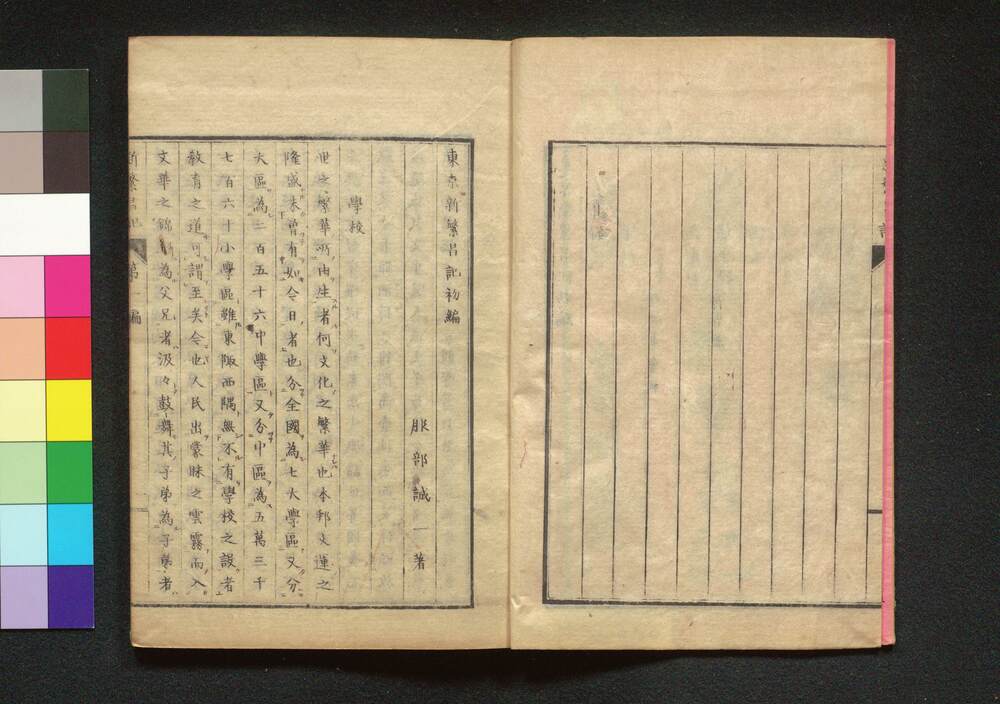 東京新繁昌記初編
服部誠一著
學校
世之繁華所由生者何文化之繁華也本邦文運之
隆盛未曾有如今日者也分全國為七大學區又分
大區為二百五十六中學區又分中區為五萬三千
七百六十小學區雖東陬西隅無不有學校之設者
教育之道可謂至矣令也人民出蒙昧之雲霧而入
文華之錦為父兄者汲々鼓舞其子弟為子弟者
新繁昌記
第一編